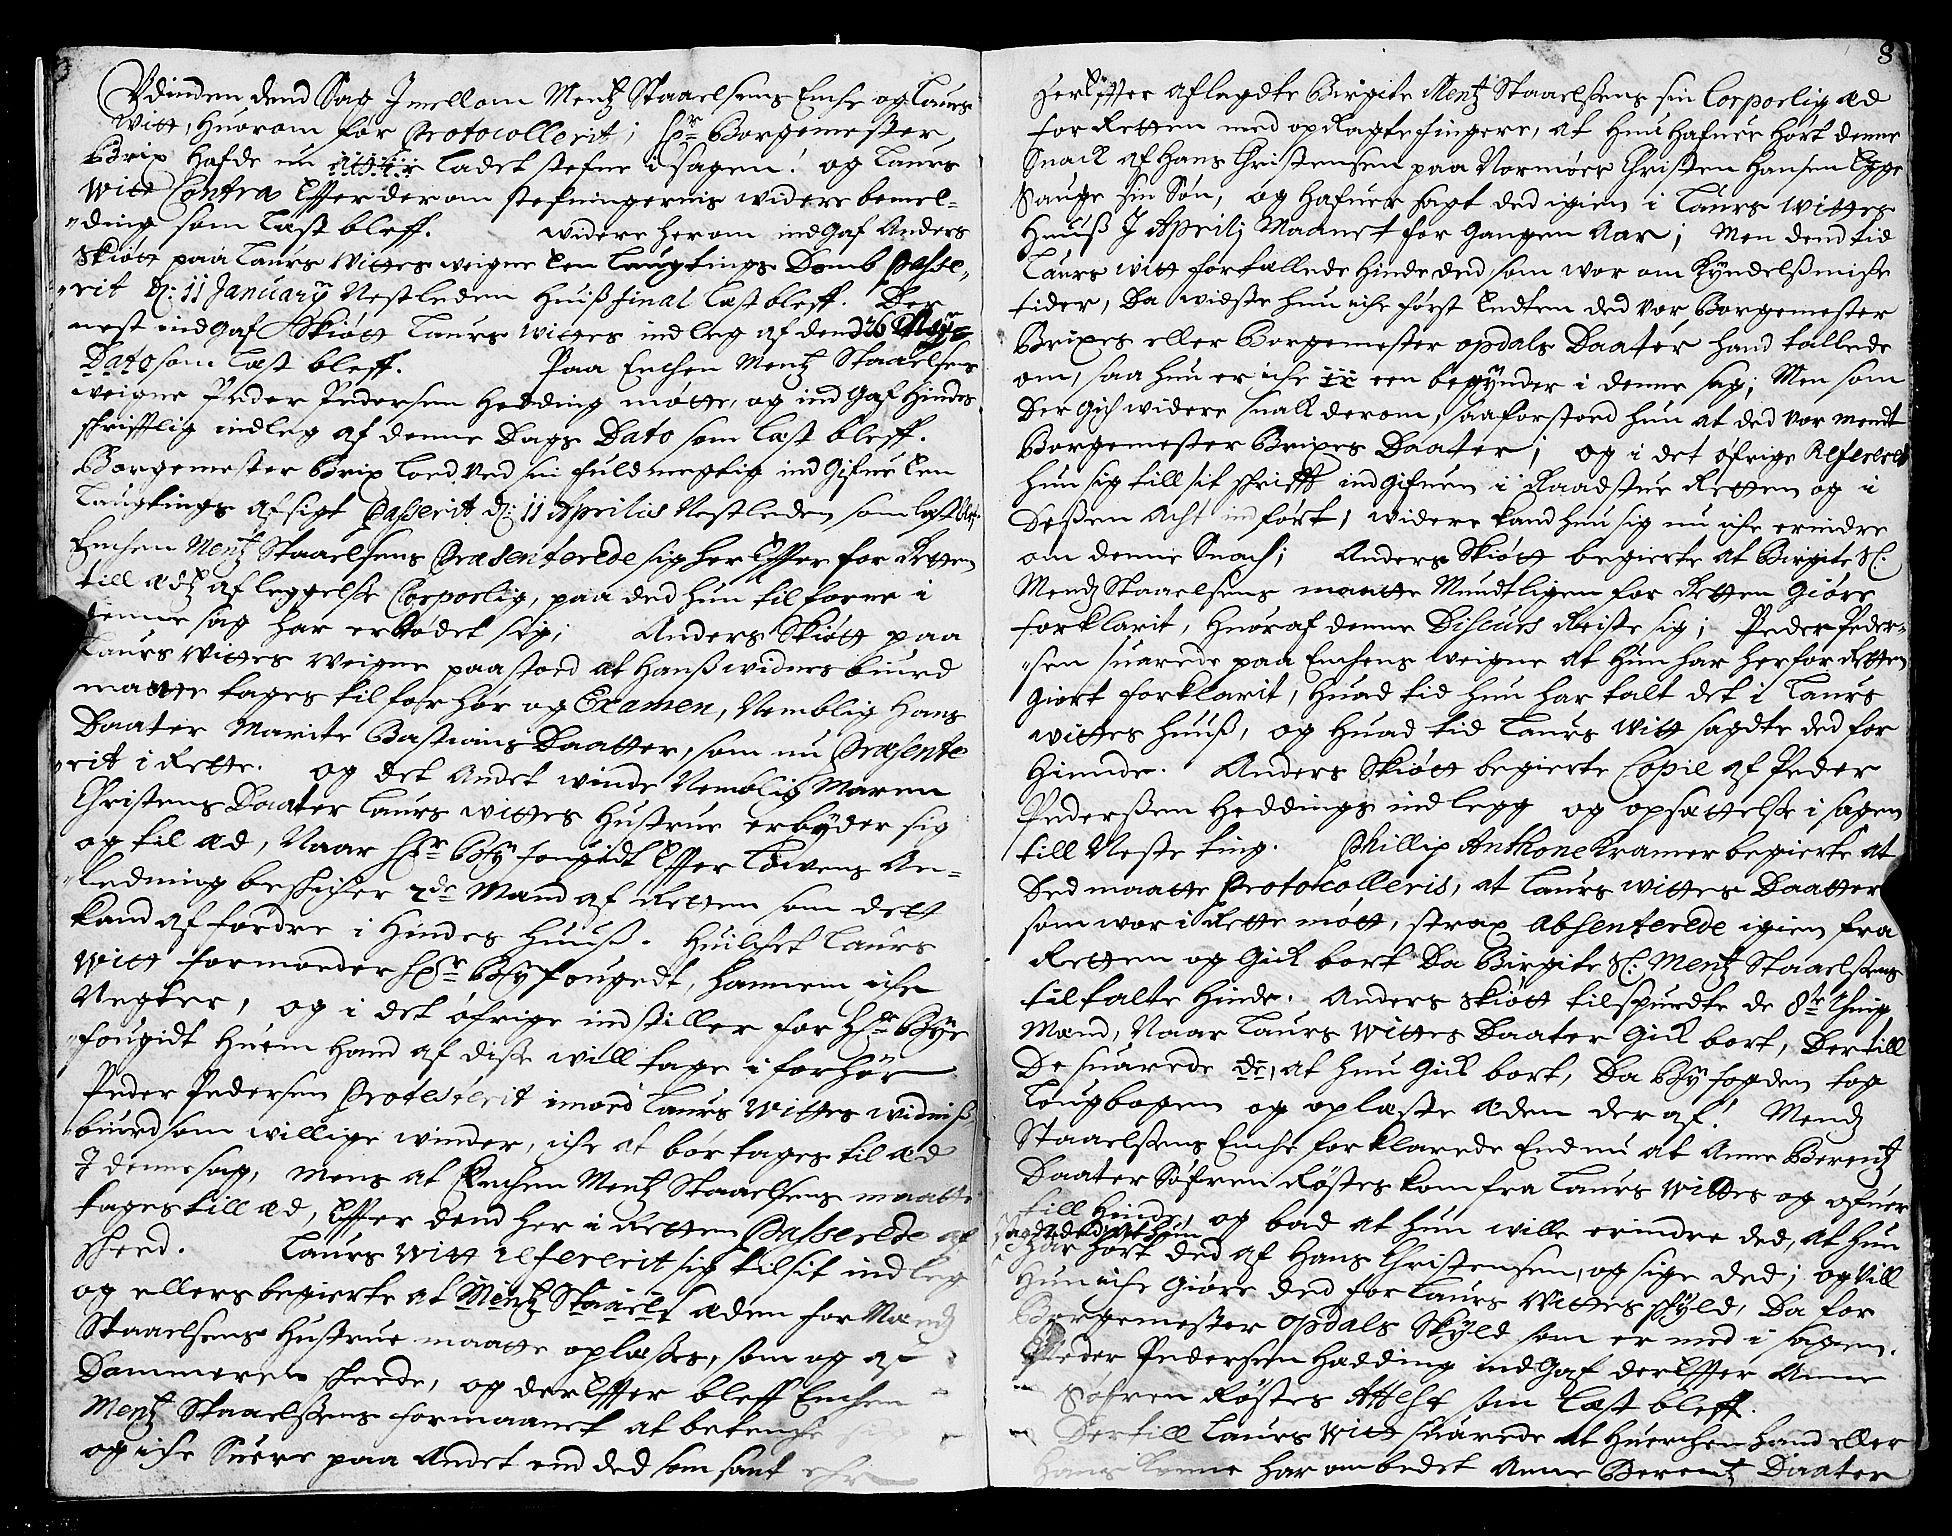 Udinden dend Sag Imellom Mentz Staaelsens Enche og Laurs
Witt, huorom før Protocollerit; Hr Borgemester
Brix hafde nu ladet stefne i sagen! og Laurs
Witt Contra Effter derom stefningernis widere bemel-
ding som læst bleff. Widere herom indgaf Anders
Skiøtt paa Laurs Wittes veigne Een Laugtings Domb Passe-
rit d: 11 January Nestleden huiss final læst bleff. Der
nest indgaf A Skiøtt Laurs Wittes indleg af dend
Dato som læst bleff. Paa Enchen Mentz Staaelsens
weigne Peder Pedersen Hedding møtte, og indgaf hindes
schrifftlig indleg af denne Dags Dato som læst bleff.
Borgemester Brix loed ved sin fuldmegtig indgifue Een
Laugtings afsigt Passerit d: 11 Aprilis Nestleden som læst blef.
Enchen Mentz Staaelsens Præsenterede sig her Effter for Retten
till ædz afleggelse Corporlig, paa ded hun tilforne i
denne sag har erbødet sig; Anders Skiøtt paa
Laurs Wittes weigne paastoed at hanss widnes biurd
maatte tages til forhør og Examen, Nemblig hans
Daater Marite Bastians Daatter, som nu Præsente
rit i Rette. og det Andet winde Nemblig Maren
Christens Daater Laurs Wittes hustrue erbyder sig
og til æd, Naar Hr Byfougidt Effter Lowens An-
ledning beschicher 2de Mænd af Retten som dett
kand affordre i hindes huuss. Huilchet Laurs
Witt formoeder Hr Byfougedt, hannem iche
Negter, og i det øfrige indstiller for Hr Bye
fougidt huem hand af disse will tage i forhør
Peder Pedersen Protesterit imod Laurs Wittes widniss
biurd som willige winder, iche at bør tages til æd
I denne sag, mens at Enchen Mentz Staaelsens maatte
tages till æd, Effter dend her i Retten Passerede af
scheed. Laurs Witt refererit sig til sit indleg
og ellers begierte at Mentz Staaels æden for Mændz
Staaelsens hustrue maatte oplæses, som og af
Dommeren scheede, og der Effter bleff Enchen
Mentz Staaelssens formaanet at betenche sig
og iche Suere paa Andet end ded som sant ehr
8
Her Effter aflagdte Birgite Mentz Staaelssens sin Corporlig æd
for Retten med opRagte fingere, at hun hafuer hørt denne
Snack af Hans Christensen paa Normøer Christen Hansen Egge
Sauge sin Søn, og hafuer sagt ded igien i Laurs Wittes
huuss I Aprilj Maanet for Gangen Aar; Men dend tid
Laurs Witt fortællede hinde ded, som wor om Kyndelssmisse
tider, Da widste hun iche først Endten ded vor Borgemester
Brixes eller Borgemester opdals Daater hand tallede
om, saa hun er iche een begynder i denne sag; Men som
Der Gich widere snack derom, saa forstoed hun at ded vor mendt
Borgemester Brixes Daater; og i det øfrige Refererit
hun sig till sit schrifft indgifuen i Raadstue Retten og i
Dessen Acht indført, widere kand hun sig nu iche erindre
om denne Snach; Anders Skiøtt begierte at Birgite Sl:
Mendz Staaelsens maatte Mundtligen for Retten Giøre
forklarit, huoraf denne Discurs Reiste sig; Peder Peder-
sen suarede paa Enchens weigne at hun har her for Retten
Giort forklarit, huad tid hun har talt det i Laurs
wittes huuss, og huad tid Laurs Witt sagdte ded for
hinde. Anders Skiøtt begierte Copie af Peder
Pederssen Heddings indlegg og opsættelse i sagen
till Neste ting. Phillip Anthone Kramer begierte at
Ded maatte Protocolleris, at Laurs Wittes Daatter
som wor i Rette møtt, strax Absenterede igien fra
Retten og Gick bort Da Birgite Sl: Mentz Staaelssens
tiltalte hinde. Anders Skiøtt tilspurdte de 8te Thing
Mænd, Naar Laurs Wittes Daater Gick bort, Dertill
De suarede at hun Gick bort, Da Byfogden tog
Lougbogen og oplæste æden deraf! Mendz
Staaelssens Enche forklarede Endnu at Anne Berentz
Daater Søfren Røstes kom fra Laurs Wittes og ofuer
till hinde, og bad at hun wille erindre ded, at hun
sagde ded at hun
har hørt ded af Hans Christensen, og sige ded; og Vill
hun iche Giøre ded for Laurs Wittes schyld, Da for
Borgemester opdals Skyld som er med i sagen.
Peder Pedersen Hadding indgaf der Effter Anne
Søfren Røstes Attest som Læst bleff.
Dertill Laurs Witt suarede at huerchen hand eller
hans konne har ombedet Anne Berentz Daater